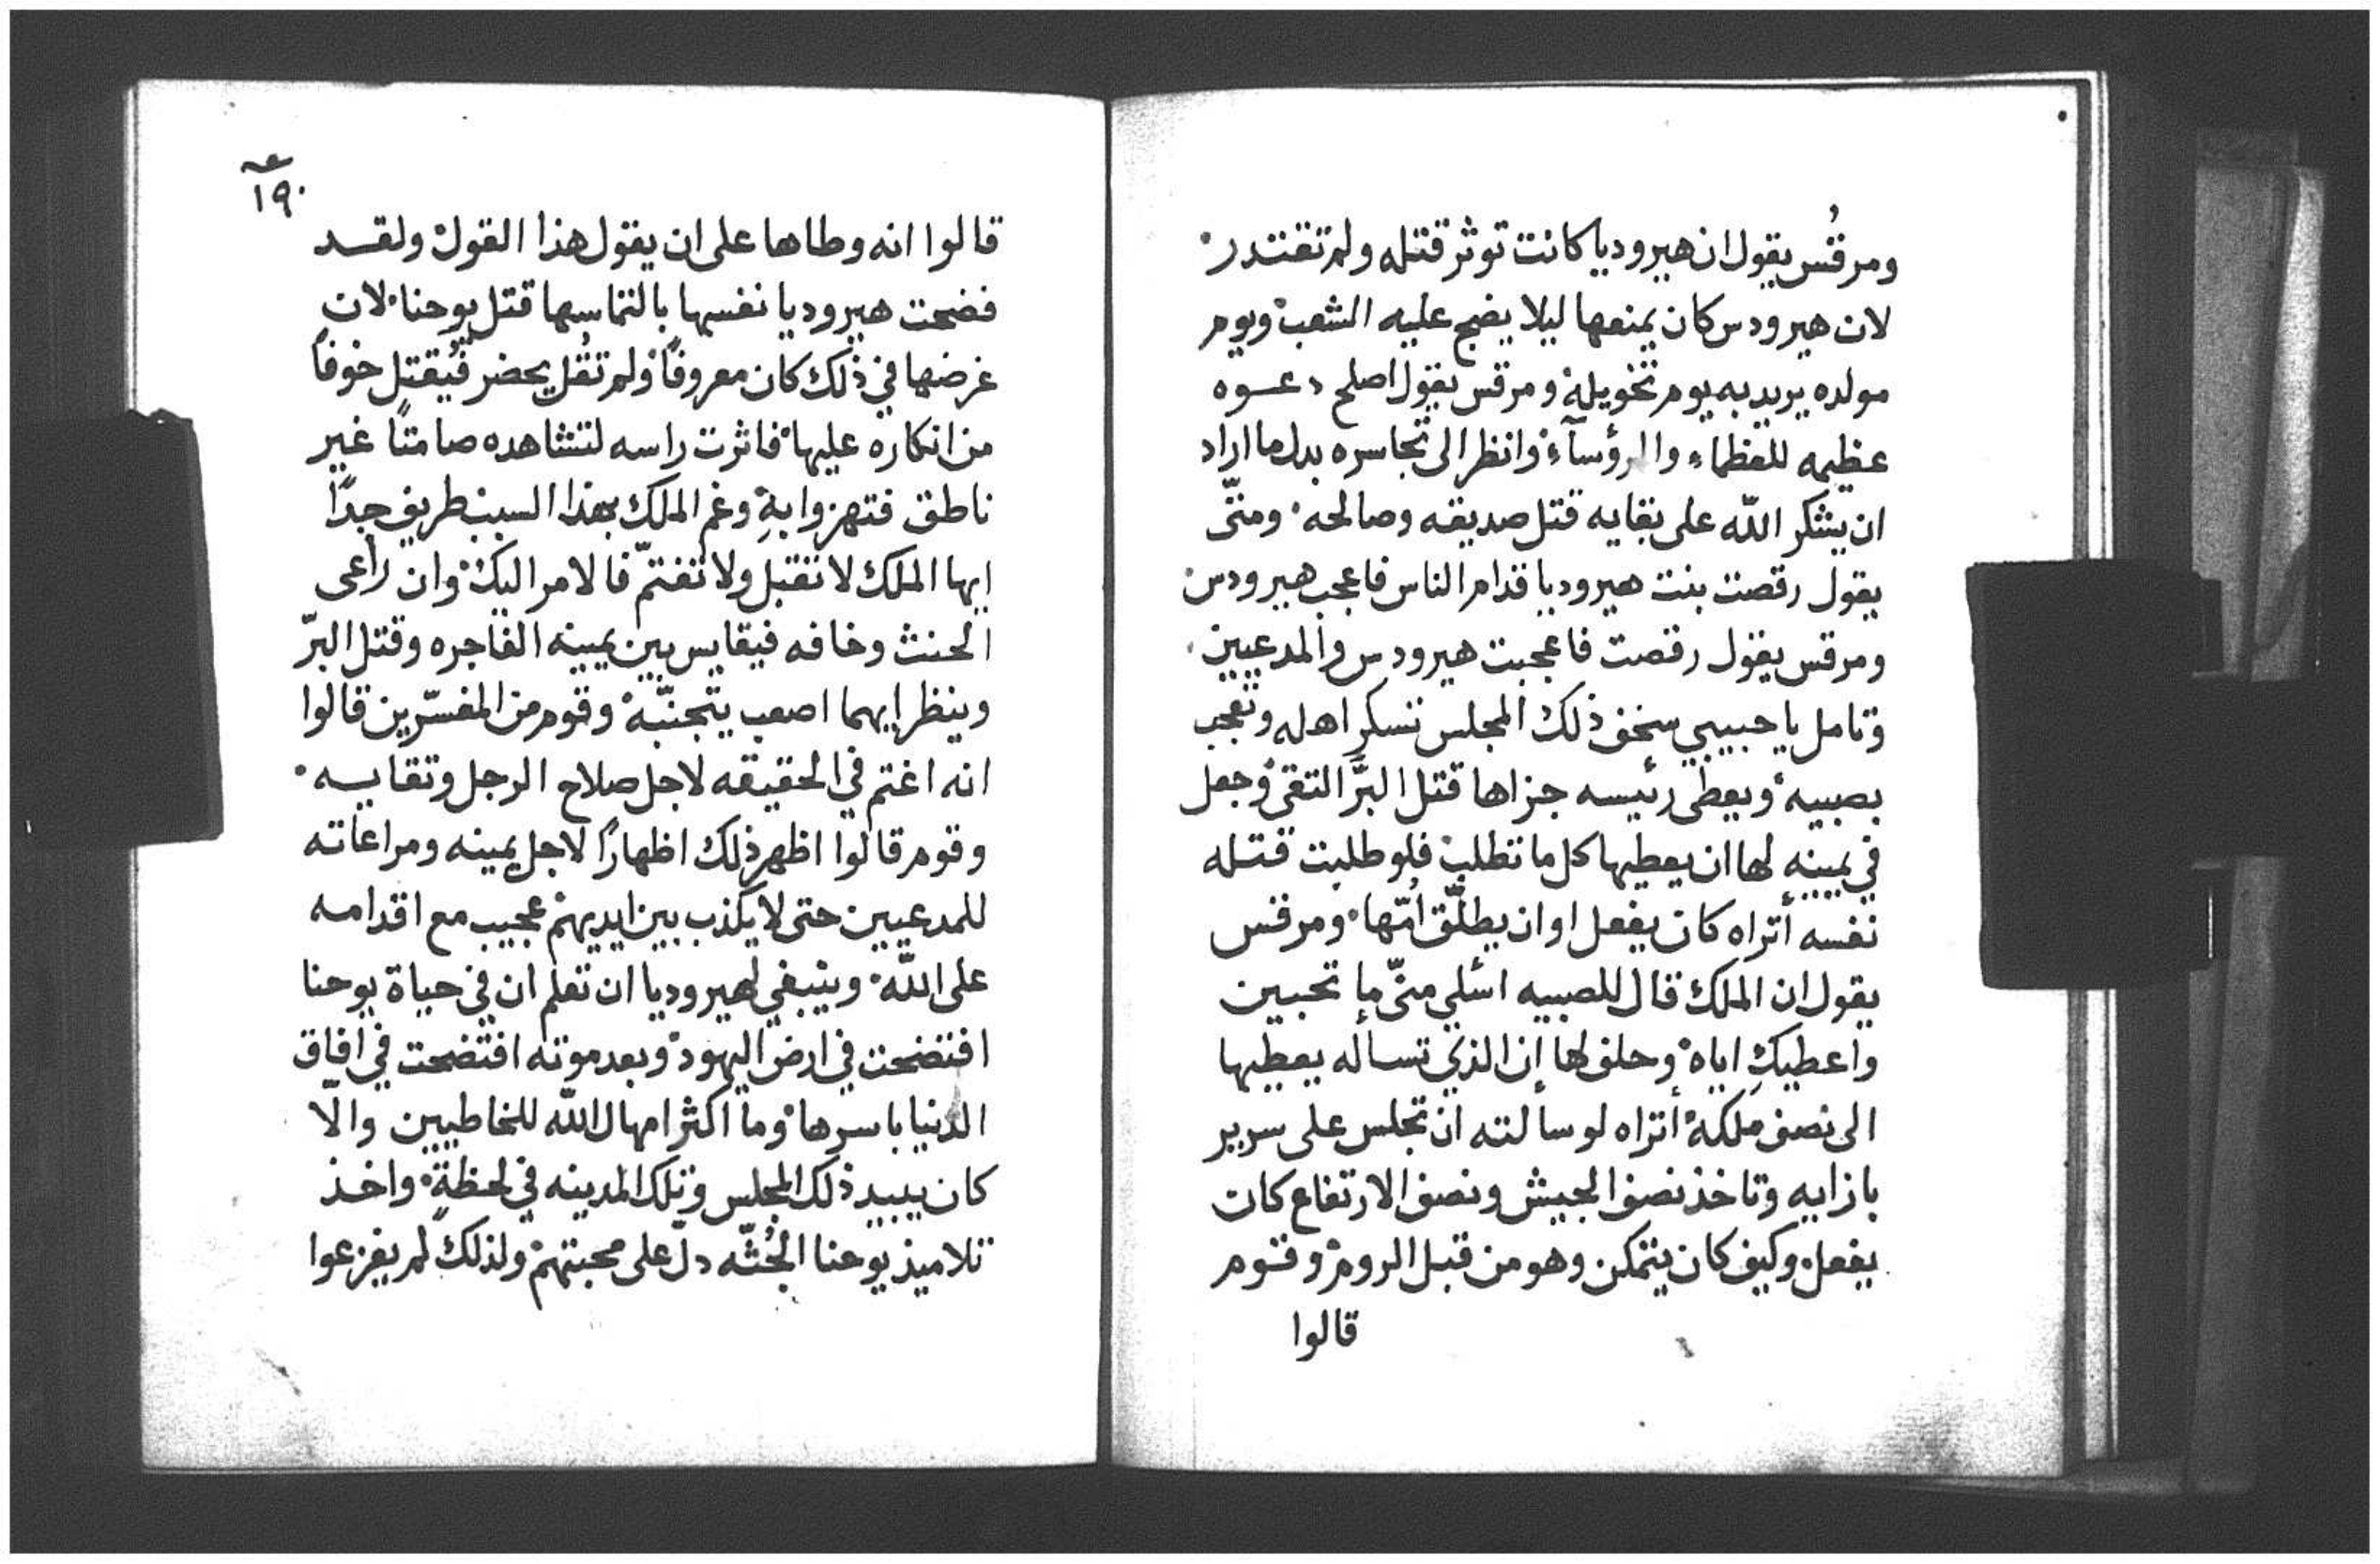 ومرقُس يقول ان هيروديا كانت توثر قتله ولم تقتدر
لان هيرودس كان يمنعها ليلا يضج عليه الشعب ويوم
مولده يريد به يوم تحويله ومرقس يقول اصلح دعوه
عظيمه للعظماء والرؤسآء وانظر الى تجاسره بدل ما اراد
ان يشكر اللّه على بقايه قتل صديقه وصالحه ومتّى
يقول رقصت بنت هيروديا قدام الناس فاعجب هيرودس
ومرقس يقول رقصت فاعجبت هيرودس والمدعيين
وتامل يا حبيبي سخف ذلك المجلس تسكر اهله وتعجب
بصبيه ويعطى رئيسه جزاها قتل البرّ التقى وجعل
في يمينه لها ان يعطيها كل ما تطلب فلو طلبت قتله
نفسه أتراه كان يفعل او ان يطلّق اُمّها ومرقس
يقول ان الملك قال للصبيه اسئلي منّي ما تحبين
واعطيكِ اياه وحلف لها إن الذي تساله يعطيها
الى نصف ملكه أتراه لو سالته ان تجلس على سرير
بازايه وتاخذ نصف الجيش ونصف الارتفاع كان
يفعل وكيف كان يتمكن وهو من قبل الروم وقوم
قالوا
١٩٠
قالوا انه وطاها على ان يقول هذا القول ولقد
فضحت هيروديا نفسها بالتماسها قتل يوحنا لان
غرضها في ذلك كان معروفاً ولم تقُل يحضر فيُقتل خوفاً
من انكاره عليها فاثرت راسه لتشاهده صامتاً غير
ناطق فتهزوا بهِ وغم الملك بهذا السبب طريف جداً
ايها الملك لا تقتل ولا تغتمّ فالامر اليك وان راعى
الحنث وخافه فيقايس بين يمينه الفاجره وقتل البرّ
وينظر ايهما اصعب يتجنّبه وقوم من المفسّرين قالوا
انه اغتم في الحقيقه لاجل صلاح الرجل وتقايسه
وقوم قالوا اظهر ذلك اظهاراً لاجل يمينه ومراعاته
للمدعيين حتى لا يكذب بين ايديهم عجيب مع اقدامه
على اللّه وينبغي لهيروديا ان تعلم ان في حياة يوحنا
افتضحت في ارض اليهود وبعد موته افتضحت في افاق
الدنيا باسرها وما اكثر امهال اللّه للخاطيين والّا
كان يبيد ذلك المجلس وتلك المدينه في لحظةٍ واخذ
تلاميذ يوحنا الجُثّه دلّ على محبتهم ولذلك لم يفزعوا